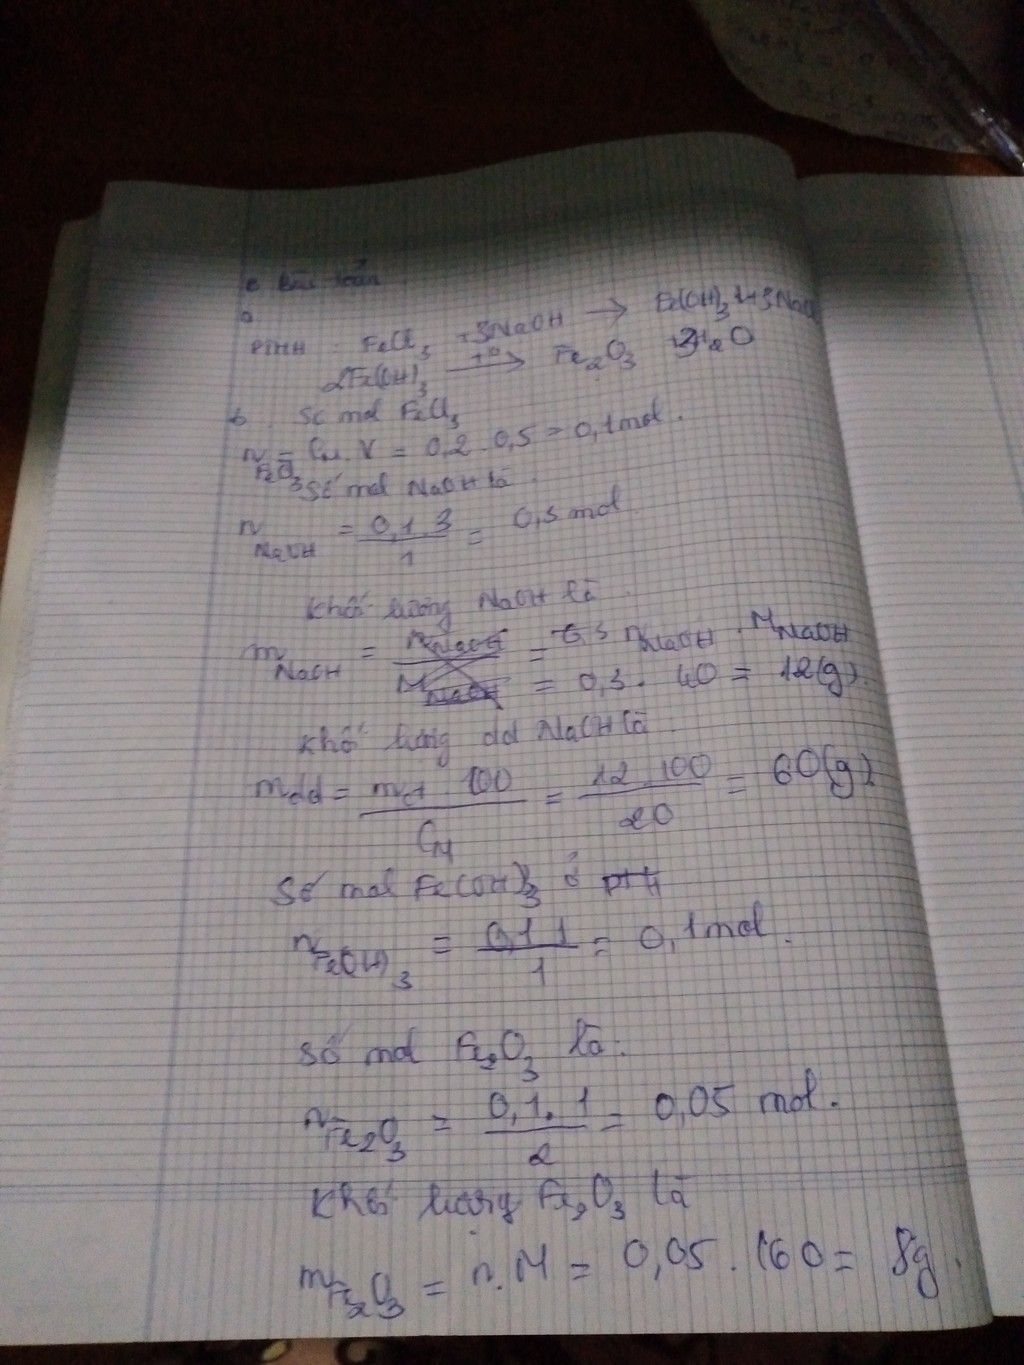 Bài toán
a
PTHH FeCl3 + 3NaOH → Fe(OH)3 ↓ + 3NaCl
2Fe(OH)3 t° → Fe2O3 3H2O
b Số mol FeCl3
nFe2O3 = CM. V = 0,2 . 0,5 = 0,1 mol.
Số mol NaOH là
nNaOH = 0,1.3 / 1 = 0,3 mol
Khối lượng NaOH là
mNaOH = nNaOH . MNaOH
= 0,3. 40 = 12(g)
Khối lượng dd NaOH là
mdd = mct . 100 / CM = 12.100 / 20 = 60(g)
Số mol Fe(OH)3 ở pt
nFe(OH)3 = 0,1.1 / 1 = 0,1 mol.
Số mol Fe2O3 là:
nFe2O3 = 0,1. 1 / 2 = 0,05 mol.
Khối lượng Fe2O3 là
mFe2O3 = n.M = 0,05 . 160 = 8g.